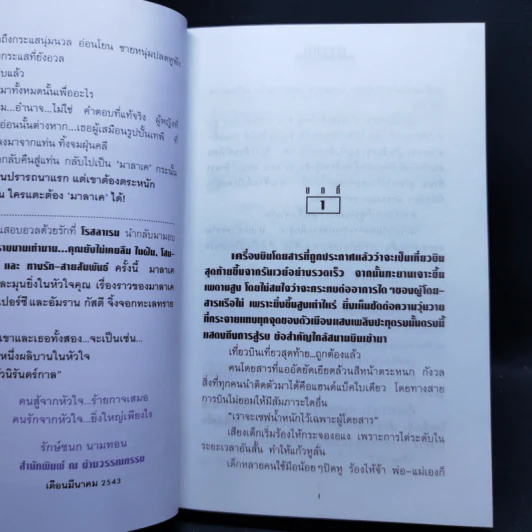 กถึงกระแสนุ่มนวล อ่อนโยน ชายหนุ่มปลดหูฟัง
กระแสที่ยังอวล
บแล้ว
มาทั้งหมดนั้นเพื่ออะไร
ม...อำนาจ...ไม่ใช่ คำตอบที่แท้จริง ผู้หญิงที่
อ่อนนั้นต่างหาก...เธอผู้เสมือนรูปปั้นเทพี ที่
งมาจากแท่น ทิ้งจมฝุ่นคลี
กลับคืนสู่แท่น กลับไปเป็น "มาลาเค" กระนั้น
นปรารถนาแรก แต่เขาต้องตระหนัก
น ใครแตะต้อง 'มาลาเค' ได้!
แสอบอวลด้วยรักที่ โรสลาเรน นำกลับมามอบ
รายนามเก่านาน...คุณยังไม่เคยลืม ในฝัน, โสม-
และ ทางรัก-สายสัมพันธ์ ครั้งนี้ มาลาเค
ละมุนยิ่งในหัวใจคุณ เรื่องราวของมาลาเค
เปอร์ซี และอัมราน กัสดี จิ้งจอกทะเลทราย
เขาและเธอทั้งสอง...จะเป็นเช่น...
หนึ่งผลิบานในหัวใจ
วนิรันดร์กาล"
คนสู้จากหัวใจ...ร้ายกาจเสมอ
คนรักจากหัวใจ...ยิ่งใหญ่เพียงใจ
รักษ์ชนก นามทอน
สำนักพิมพ์ ณ บ้านวรรณกรรม
เดือนมีนาคม 2543
บทที่
1
เครื่องบินโดยสารที่ถูกประกาศแล้วว่าจะเป็นเที่ยวบิน
สุดท้ายขึ้นจากรันเวย์อย่างรวดเร็ว จากนั้นทะยานเจาะขึ้น
เพดานสูง โดยไม่สนใจว่าจะกระทบต่ออาการใด ๆ ของผู้โดย-
สารหรือไม่ เพราะยิ่งขึ้นสูงเท่าไหร่ ยิ่งเห็นชัดต่อความวุ่นวาย
ที่กระจายแทบทุกจุดของตัวเมือง แสงเพลิงปะทุตรงนั้นตรงนี้
แสดงถึงการสู้รบ ข้อสำคัญใกล้สนามบินเข้ามา
เที่ยวบินเที่ยวสุดท้าย...ถูกต้องแล้ว
คนโดยสารที่แออัดยัดเยียดล้วนสีหน้าตระหนก กังวล
สิ่งที่ทุกคนนำติดตัวมาได้คือแฮนด์แบ็คใบเดียว โดยทางสาย
การบินไม่ยอมให้มีสัมภาระใดอื่น
"เราจะเซฟน้ำหนักไว้เฉพาะผู้โดยสาร"
เสียงเด็กเริ่มร้องไห้กระจองอแง เพราะการไต่ระดับใน
ระยะเวลาอันสั้น ทำให้แก้วหูลั่น
เด็กหลายคนใช้มือน้อยๆ ปิดหู ร้องไห้จ้า พ่อ-แม่เองก็
1